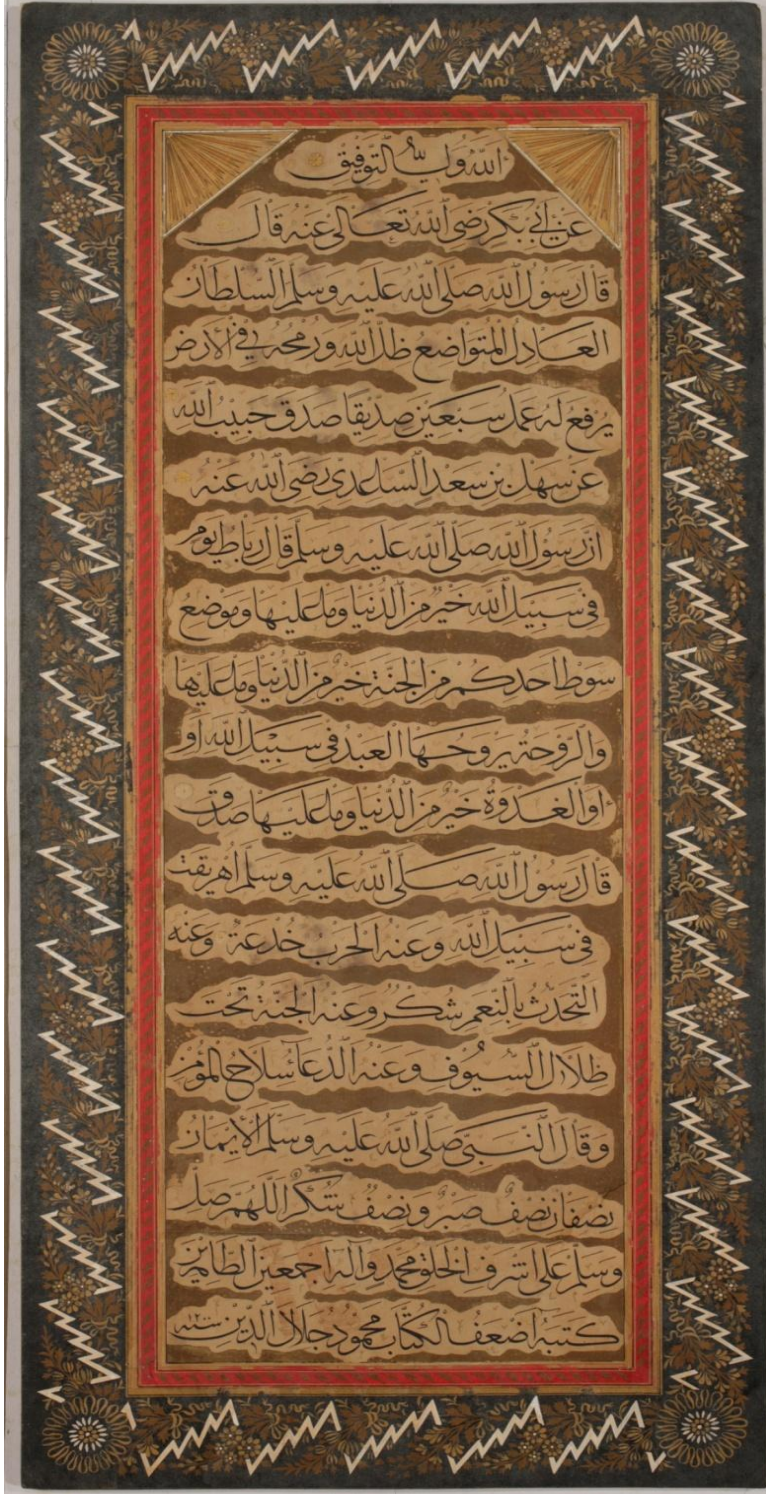 الله ولي التوفيق
عن ابي بكر رضى الله تعالى عنه قال
قال رسول الله صلى الله عليه وسلم السلطان
العادل المتواضع ظل الله ورمحه في الارض
يرفع له عمل سبعين صديقا صدق حبيب الله
عن سهل بن سعد الساعدى رضى الله عنه
ان رسول الله صلى الله عليه وسلم قال رباط يوم
في سبيل الله خير من الدنيا وما عليها وموضع
سوط احدكم من الجنة خير من الدنيا وما عليها
والروحة يروحها العبد في سبيل الله او
او الغدوة خير من الدنيا وما عليها صدق
قال رسول الله صلى الله عليه وسلم اهريقت
في سبيل الله وعنه الحرب خدعة وعنه
التحدث بالنعم شكر وعنه الجنة تحت
ظلال السيوف وعنه الدعاء سلاح المؤمن
وقال النبي صلى الله عليه وسلم الايمان
نصفان نصف صبر ونصف شكر اللهم صل
وسلم على اشرف الخلق محمد واله اجمعين الطاهرين
كتبه اضعف الكتاب محمود جلال الدين